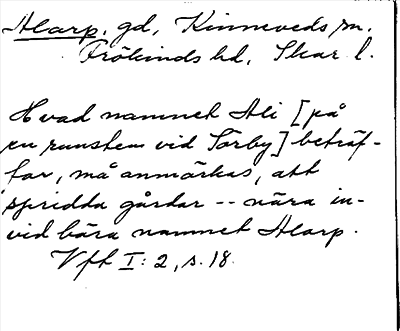 Alarp, gd, Kinneveds sn,
Frökinds hd, Skar. l.
Hvad namnet Ali [på
en runsten vid Torby] beträf-
far, må anmärkas, att
spridda gårdar -- nära in-
vid bära namnet Alarp.
Vft I: 2, s. 18.